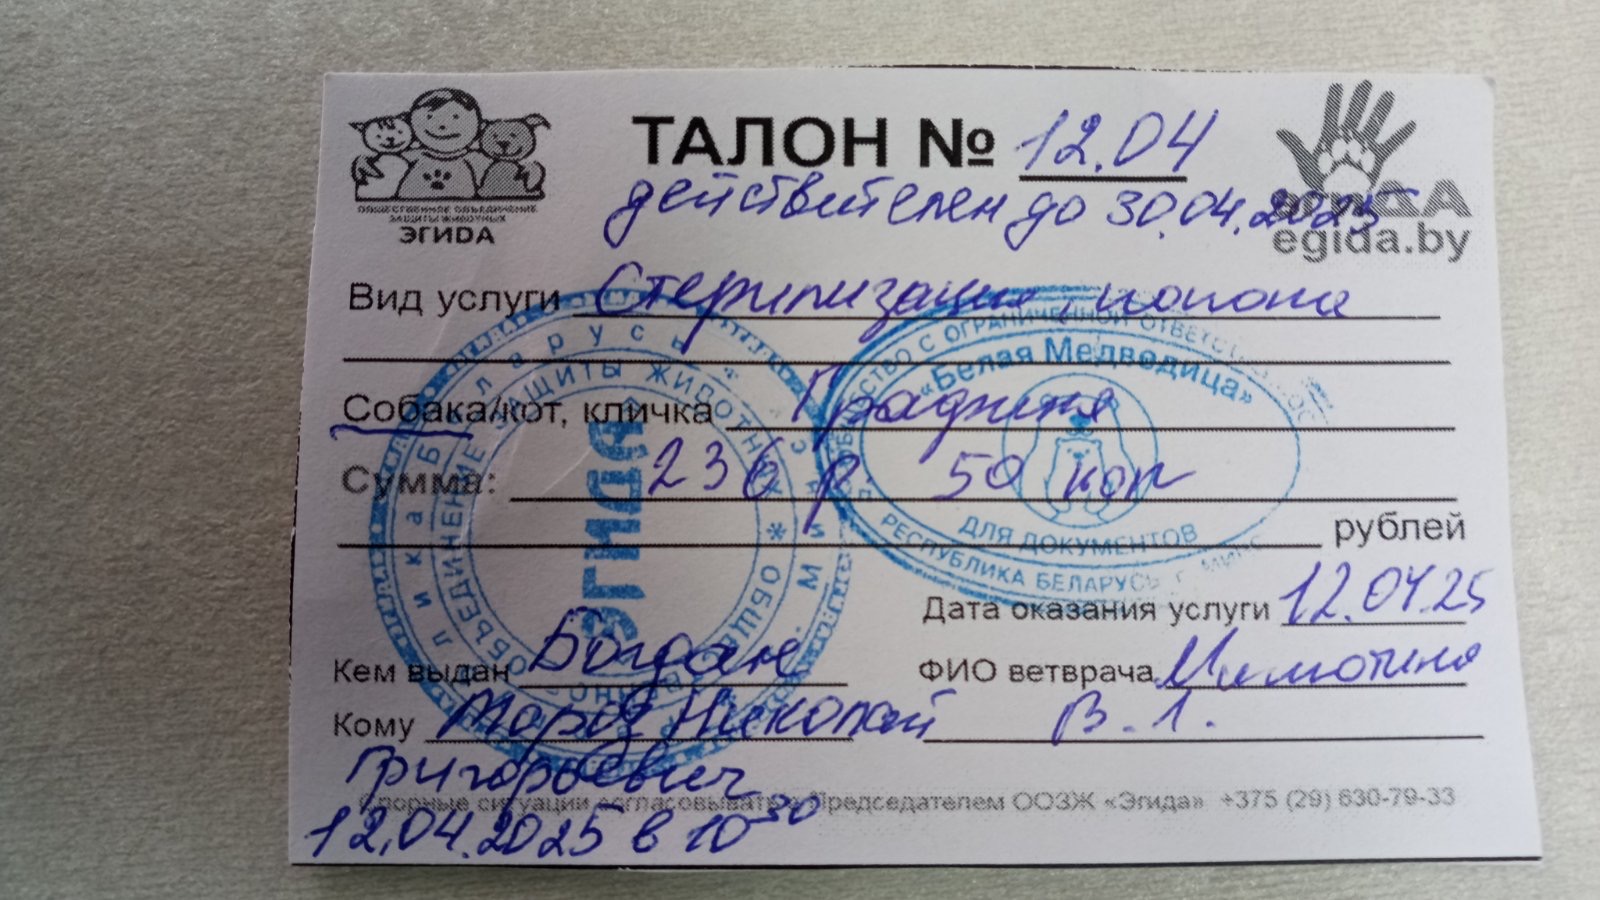 ТАЛОН № 12.04
действителен до 30.04.2025
ОБЩЕСТВЕННОЕ ОБЪЕДИНЕНИЕ
ЗАЩИТЫ ЖИВОТНЫХ
ЭГИДА
egida.by
Вид услуги Стерилизация, попона
Собака/кот, кличка
Сумма: 236 р 50 коп
рублей
Дата оказания услуги 12.04.25
Кем выдан Богдан
ФИО ветврача
В. 1.
Кому Мороз Николай
Григорьевич
12.04.2025 в 10 30
Спорные ситуации согласовывать с Председателем ООЗЖ «Эгида» +375 (29) 630-79-33
Беларусь
ОБЪЕДИНЕНИЕ ЗАЩИТЫ ЖИВОТНЫХ
ЭГИДА
ОБЩЕСТВО С ОГРАНИЧЕННОЙ ОТВЕТСТВЕННОСТЬЮ
«Белая Медводица»
ДЛЯ ДОКУМЕНТОВ
РЕСПУБЛИКА БЕЛАРУСЬ, Г. МИНСК